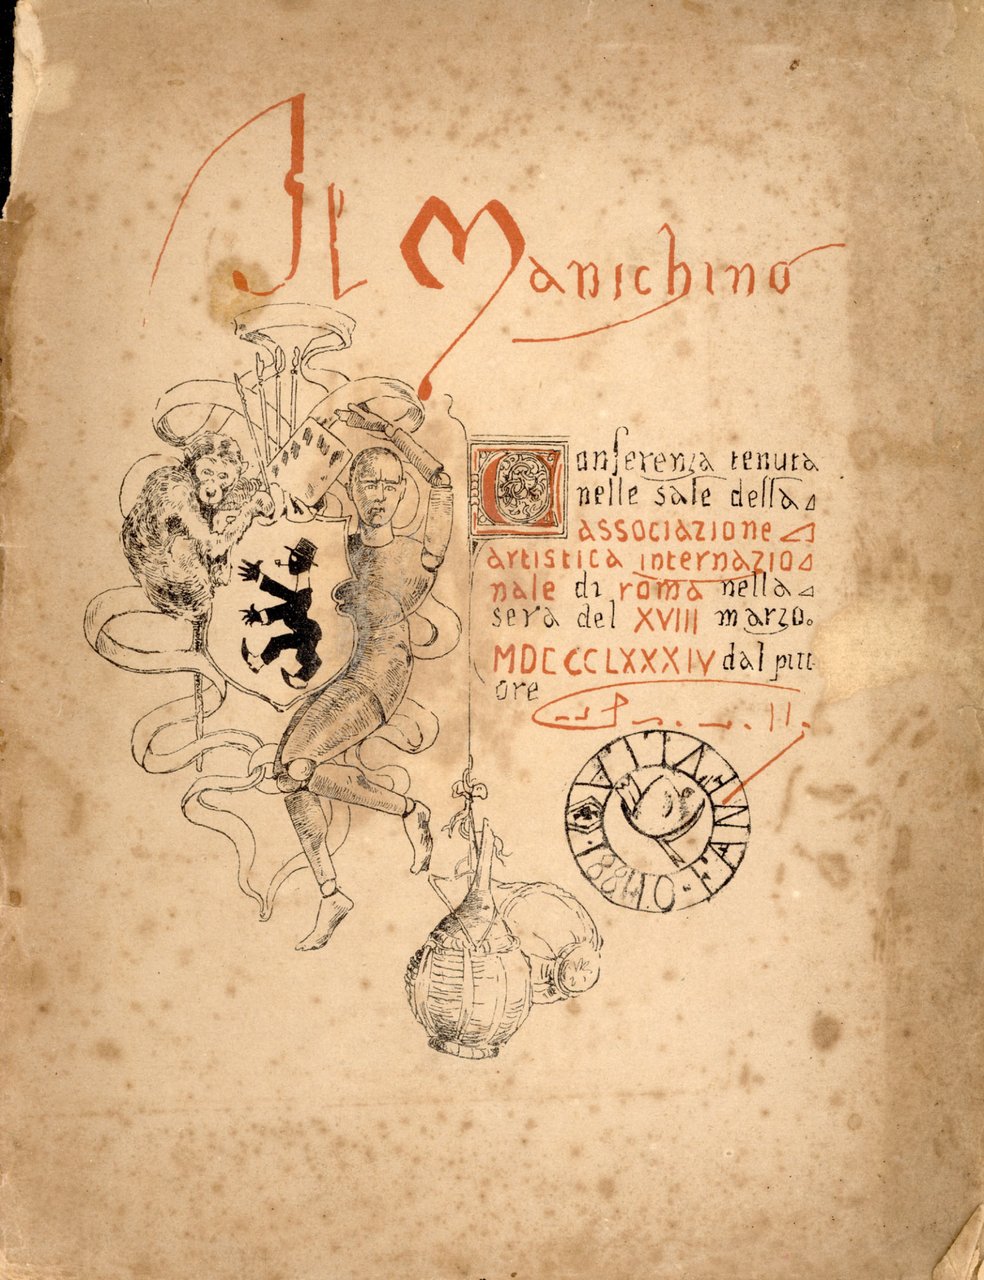 Il Manichino
Conferenza tenuta
nelle sale della
associazione
artistica internazio
nale di roma nella
sera del XVIII marzo.
MDCCCLXXXIV dal pitt
ore